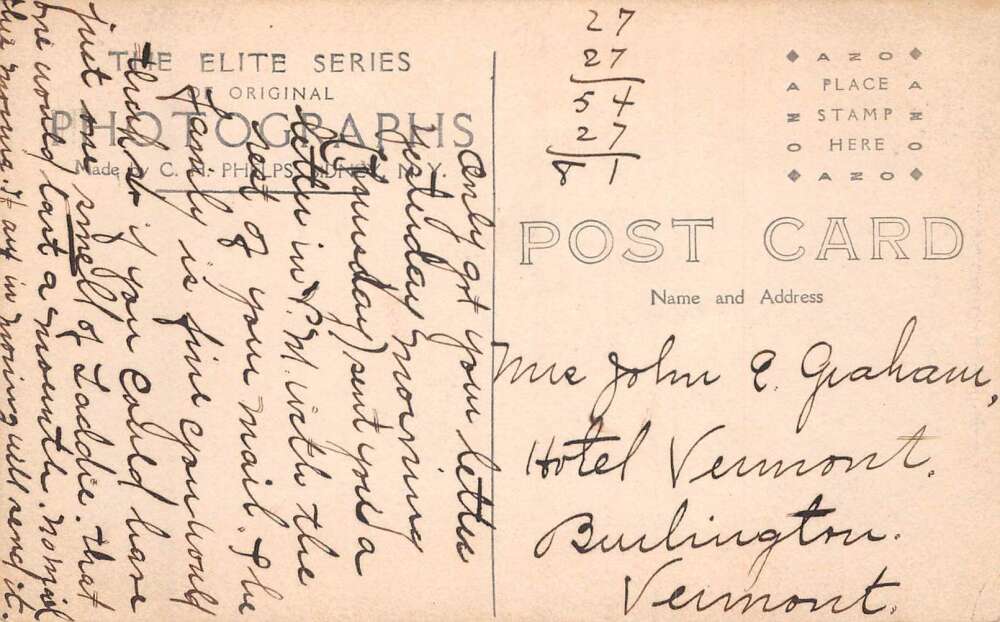 THE ELITE SERIES
OF ORIGINAL
PHOTOGRAPHS
Made by C. H. PHELPS, SIDNEY, N. Y.
27
27
54
27
81
AZO
PLACE
STAMP
HERE
AZO
POST CARD
Name and Address
Mrs John E. Graham,
Hotel Vermont.
Burlington.
Vermont.
Only got your letter
yesterday morning
(Thursday) sent you a
letter in P.M. with the
rest of your mail. The
Family is fine you would
think so if you could have
just one smell of Laddie. that
one would last a mounth. no mail
this morning. If any in morning will send it.